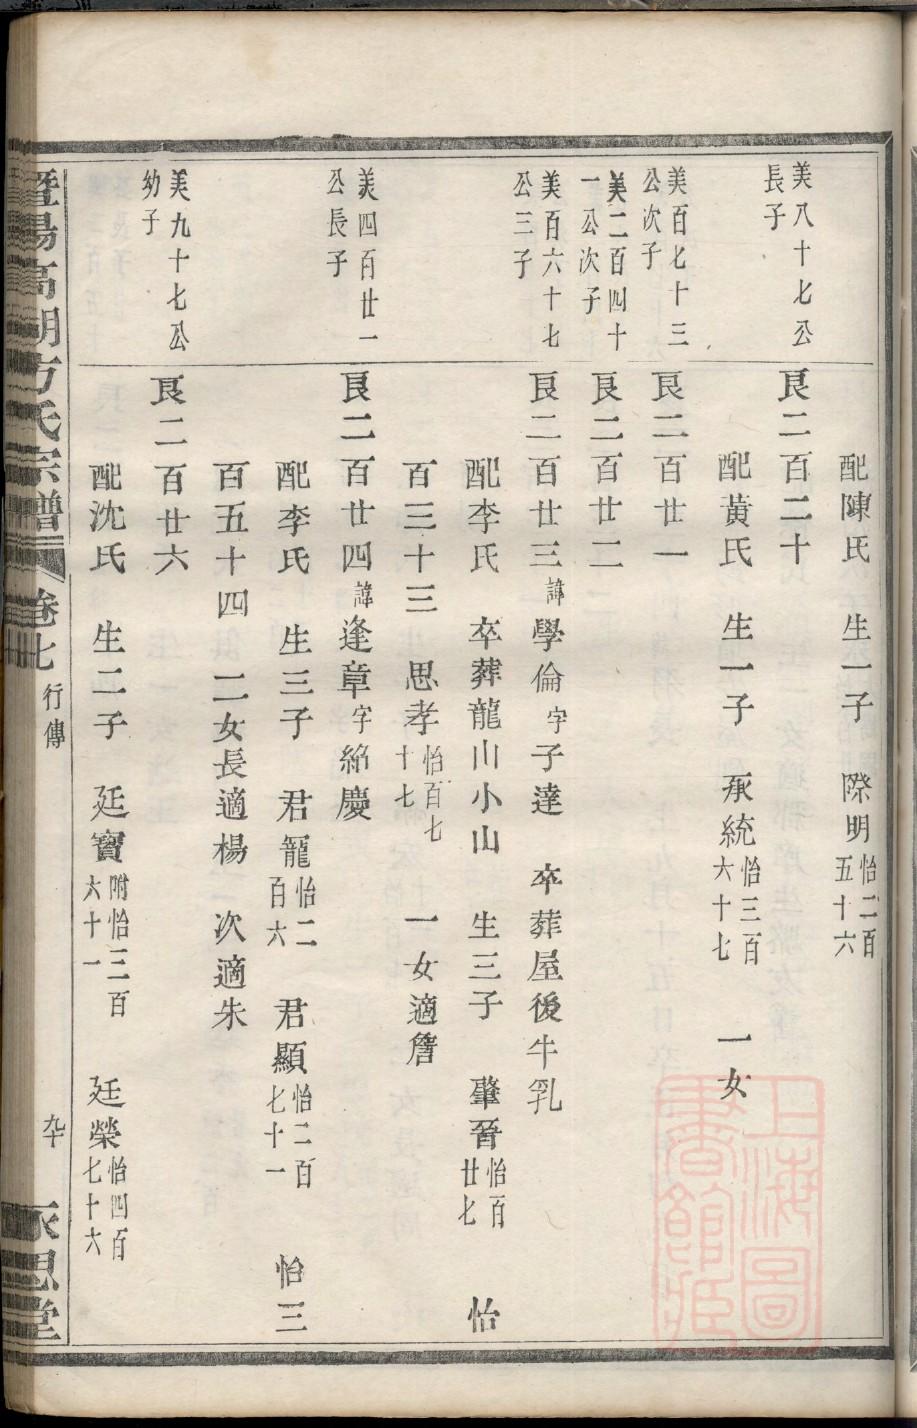 配陳氏　生一子　際明怡二百五十六
美八十七公長子
艮二百二十
配黃氏　生一子　承統怡三百六十七　一女
美百七十三公次子
艮二百廿一
美二百四十一公次子
艮二百廿二
美百六十七公三子
艮二百廿三諱學倫字子達　卒葬屋後牛乳
配李氏　卒葬龍山小山　生三子　肇晉怡百廿七　怡
百三十三　思孝怡百七十七　一女適詹
美四百廿一公長子
艮二百廿四諱逢章字綸慶
配李氏　生三子　君寵怡二百六　君顯怡二百七十一　怡三
百五十四　二女長適楊　次適朱
美九十七公幼子
艮二百廿六
配沈氏　生二子　廷寶附怡三百六十一　廷榮怡四百七十六
暨陽高湖方氏宗譜　卷七　行傳　九十　永思堂
上海圖書館藏